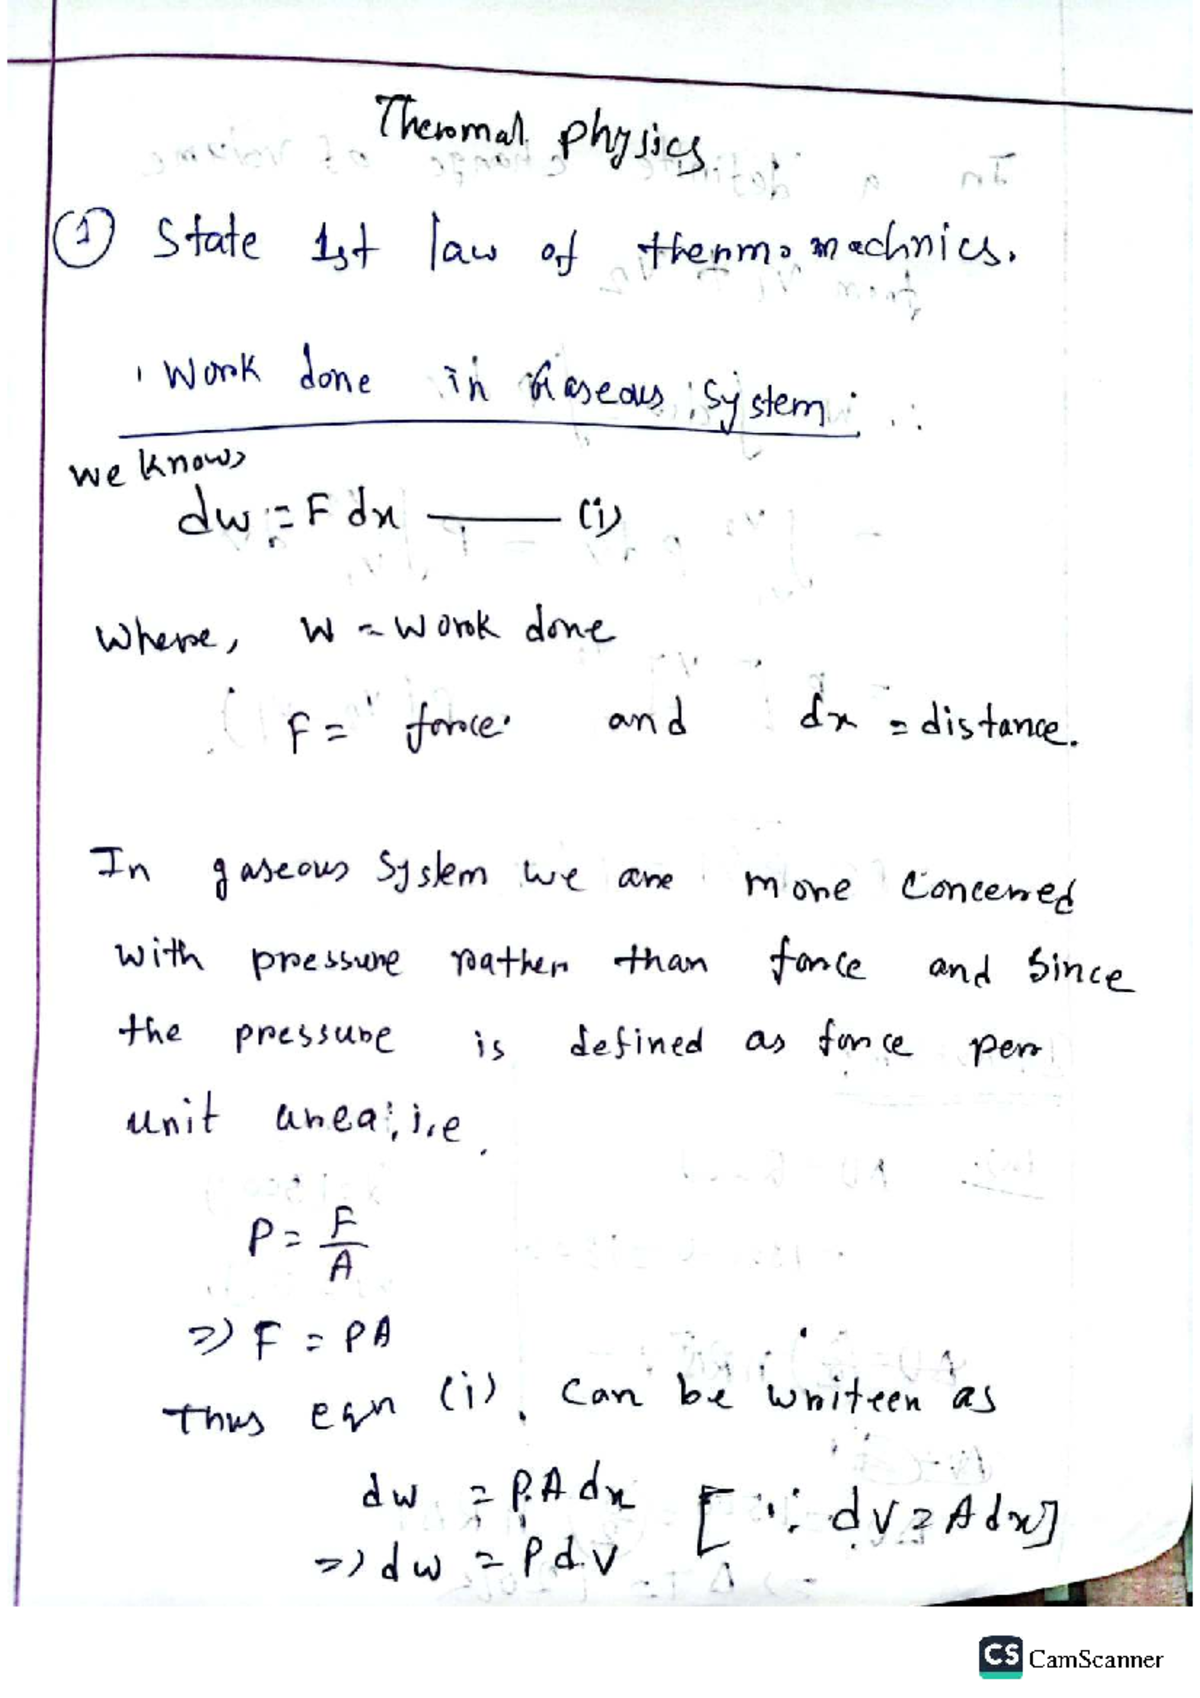 Thermal physics
① State 1st law of thermomachnics.
Work done in Gaseous system:
we know,
dw = F dx ——— (i)
Where, W = Work done
F = force and dx = distance.
In gaseous System we are more Concerned
with pressure rather than force and Since
the pressure is defined as force per
unit area, i.e
P = F/A
=> F = PA
Thus eqn (i) can be writeen as
dw = P.A dx [∵ dV = A dx]
=> dw = P d.V
CS CamScanner